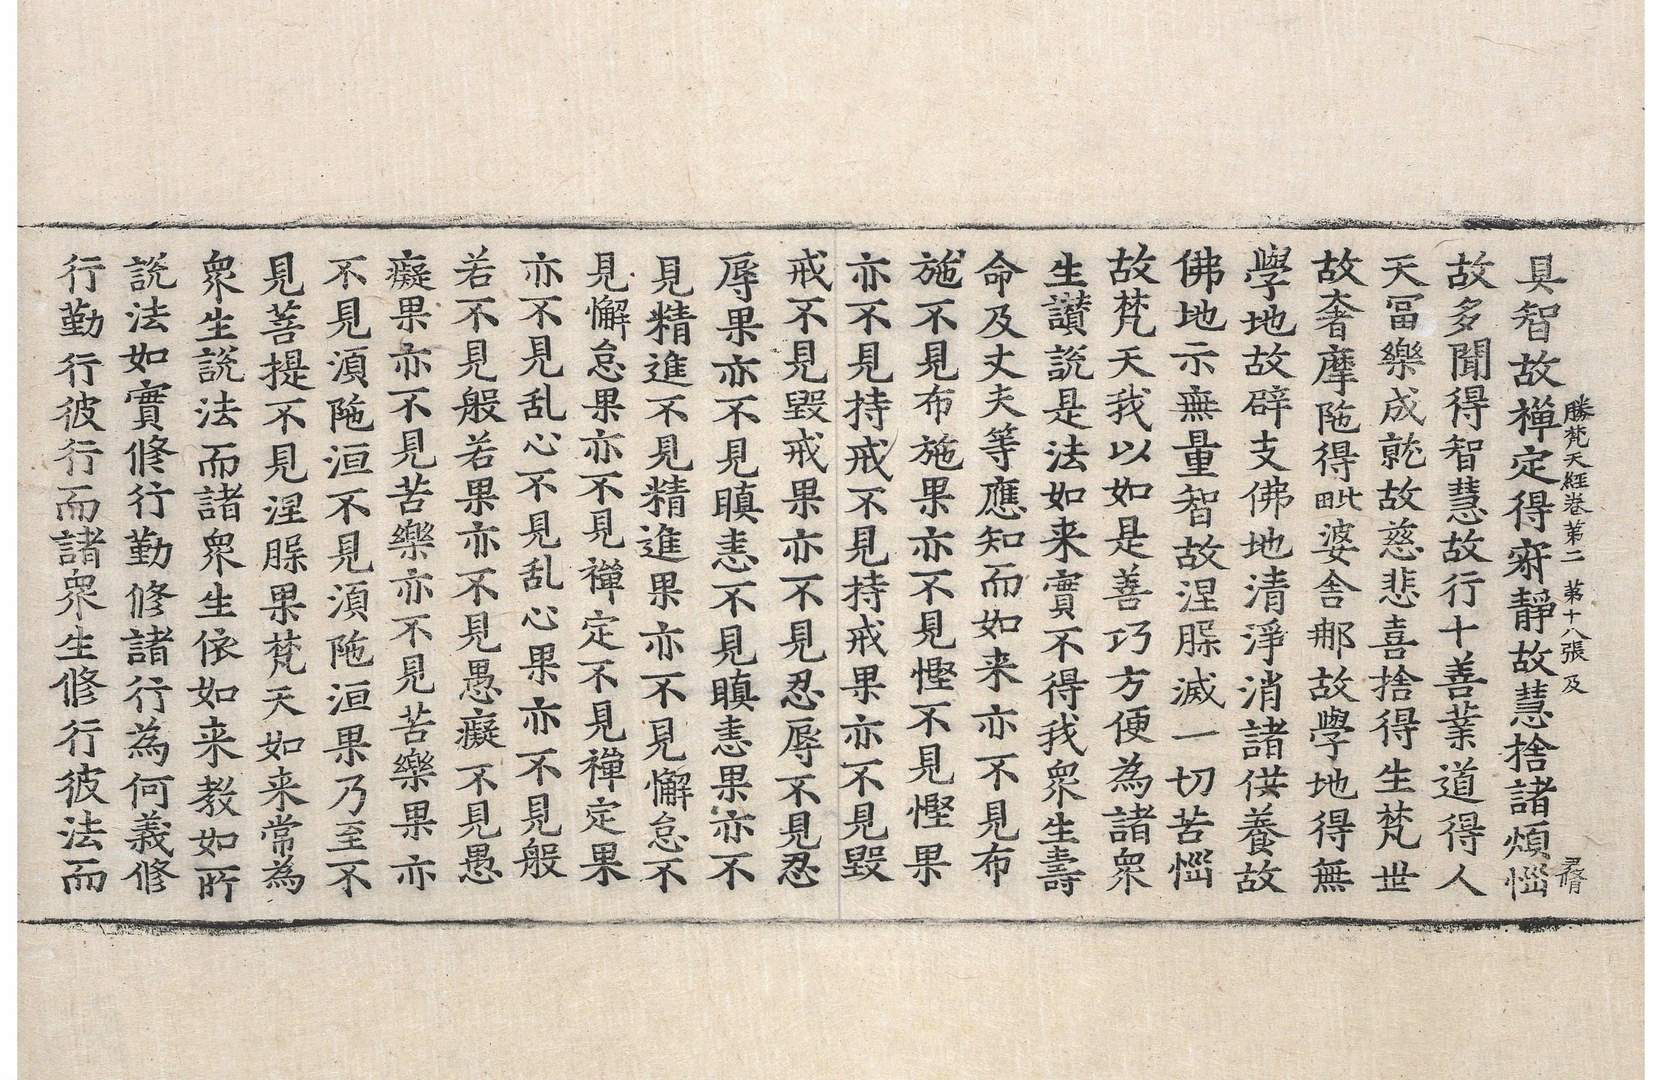 勝梵天経卷第二　第十八張　及
具智故禅定得寂靜故慧捨諸煩惱
故多聞得智慧故行十善業道得人
天冨樂成就故慈悲喜捨得生梵世
故奢摩陁得毗婆舍那故學地得無
學地故辟支佛地清淨消諸供養故
佛地示無量智故涅槃滅一切苦惱
故梵天我以如是善巧方便為諸衆
生讃說是法如来實不得我衆生壽
命及丈夫等應知而如来亦不見布
施不見布施果亦不見慳不見慳果
亦不見持戒不見持戒果亦不見毀
戒不見毀戒果亦不見忍辱不見忍
辱果亦不見瞋恚不見瞋恚果亦不
見精進不見精進果亦不見懈怠不
見懈怠果亦不見禅定不見禅定果
亦不見乱心不見乱心果亦不見般
若不見般若果亦不見愚癡不見愚
癡果亦不見苦樂亦不見苦樂果亦
不見湏陁洹不見湏陁洹果乃至不
見菩提不見涅槃果梵天如来常為
衆生說法而諸衆生依如来教如所
說法如實修行勤修諸行為何義修
行勤行彼行而諸衆生修行彼法而